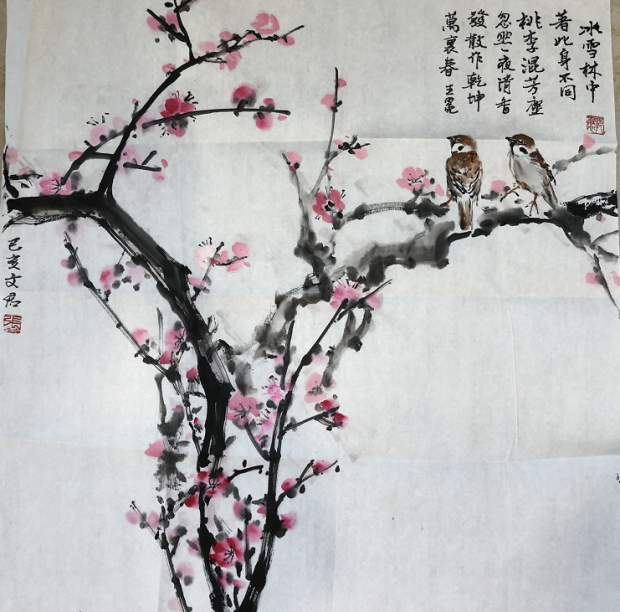 冰雪林中
著此身不同
桃李混芳塵
忽然一夜清香
發散作乾坤
萬裏春 王冕
己亥文君
張